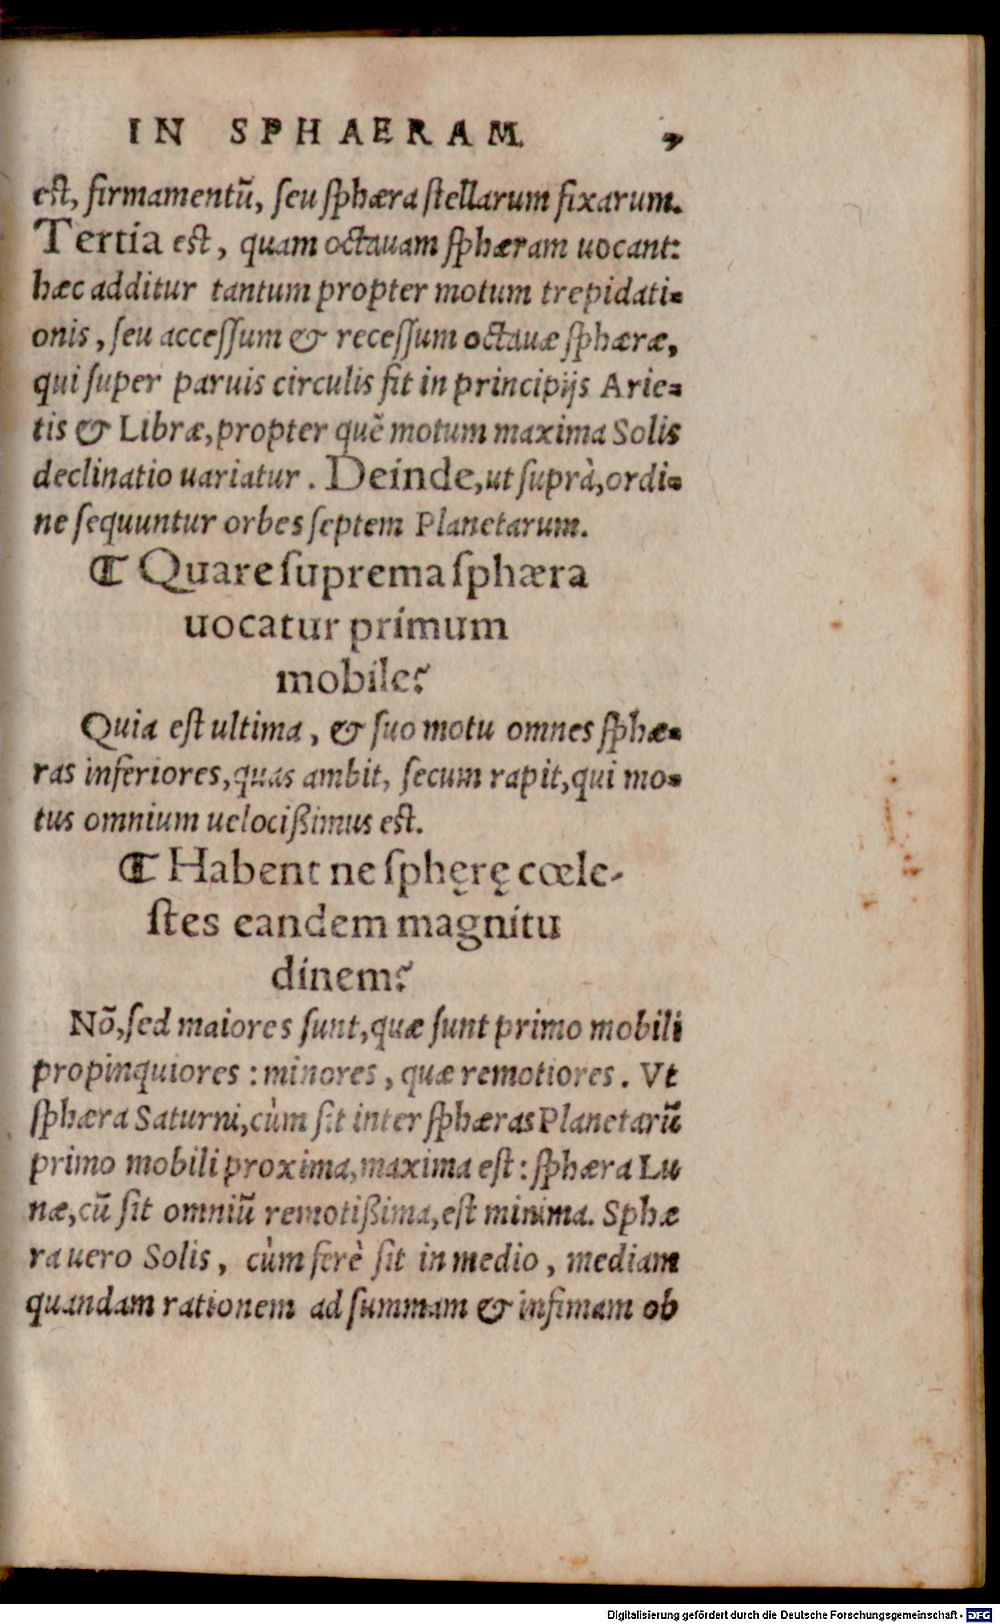 IN SPHAERAM.
est, firmamentū, seu sphæra stellarum fixarum.
Tertia est, quam octauam sphæram uocant:
hæc additur tantum propter motum trepidati-
onis, seu accessum & recessum octauæ sphæræ,
qui super paruis circulis fit in principijs Arie-
tis & Libræ, propter quē motum maxima Solis
declinatio uariatur. Deinde, ut suprà, ordi-
ne sequuntur orbes septem Planetarum.
¶ Quare suprema sphæra
uocatur primum
mobile?
Quia est ultima, & suo motu omnes sphæ-
ras inferiores, quas ambit, secum rapit, qui mo-
tus omnium uelocißimus est.
¶ Habent ne sphęrę cœle-
stes eandem magnitu
dinem?
Nō, sed maiores sunt, quæ sunt primo mobili
propinquiores: minores, quæ remotiores. Vt
sphæra Saturni, cùm sit inter sphæras Planetarū
primo mobili proxima, maxima est: sphæra Lu
næ, cū sit omniū remotißima, est minima. Sphæ
ra uero Solis, cùm ferè sit in medio, mediam
quandam rationem ad summam & infimam ob
Digitalisierung gefördert durch die Deutsche Forschungsgemeinschaft - DFG